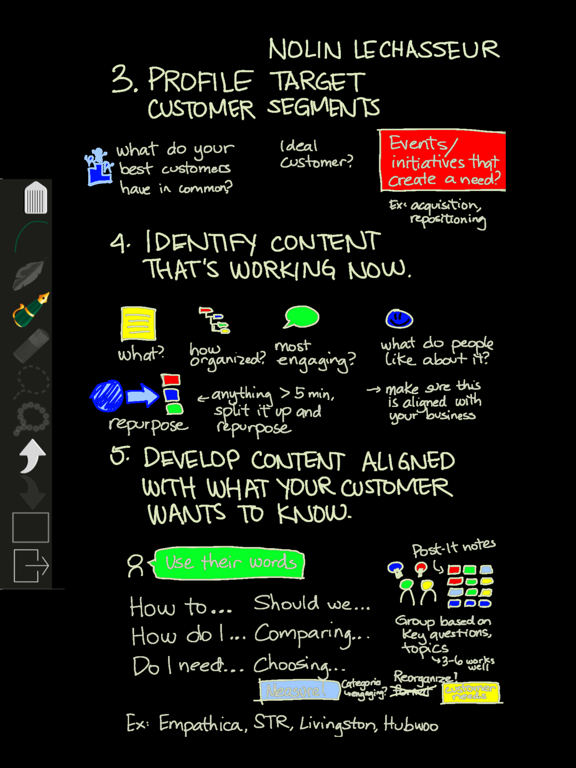 NOLIN LECHASSEUR
3. PROFILE TARGET
CUSTOMER SEGMENTS
what do your
best customers
have in common?
Ideal
customer?
Events/
initiatives that
create a need?
Ex: acquisition,
repositioning
4. IDENTIFY CONTENT
THAT'S WORKING NOW.
what?
how
organized?
most
engaging?
what do people
like about it?
repurpose
← anything > 5 min,
split it up and
repurpose
→ make sure this
is aligned with
your business
5. DEVELOP CONTENT ALIGNED
WITH WHAT YOUR CUSTOMER
WANTS TO KNOW.
Use their words
Post-It notes
How to... Should we...
How do I... Comparing...
Do I need... Choosing...
Group based on
key questions,
topics
↳ 3-6 works
well
engaging?
Reorganize?
Format
Ex: Empathica, STR, Livingston, Hubwoo